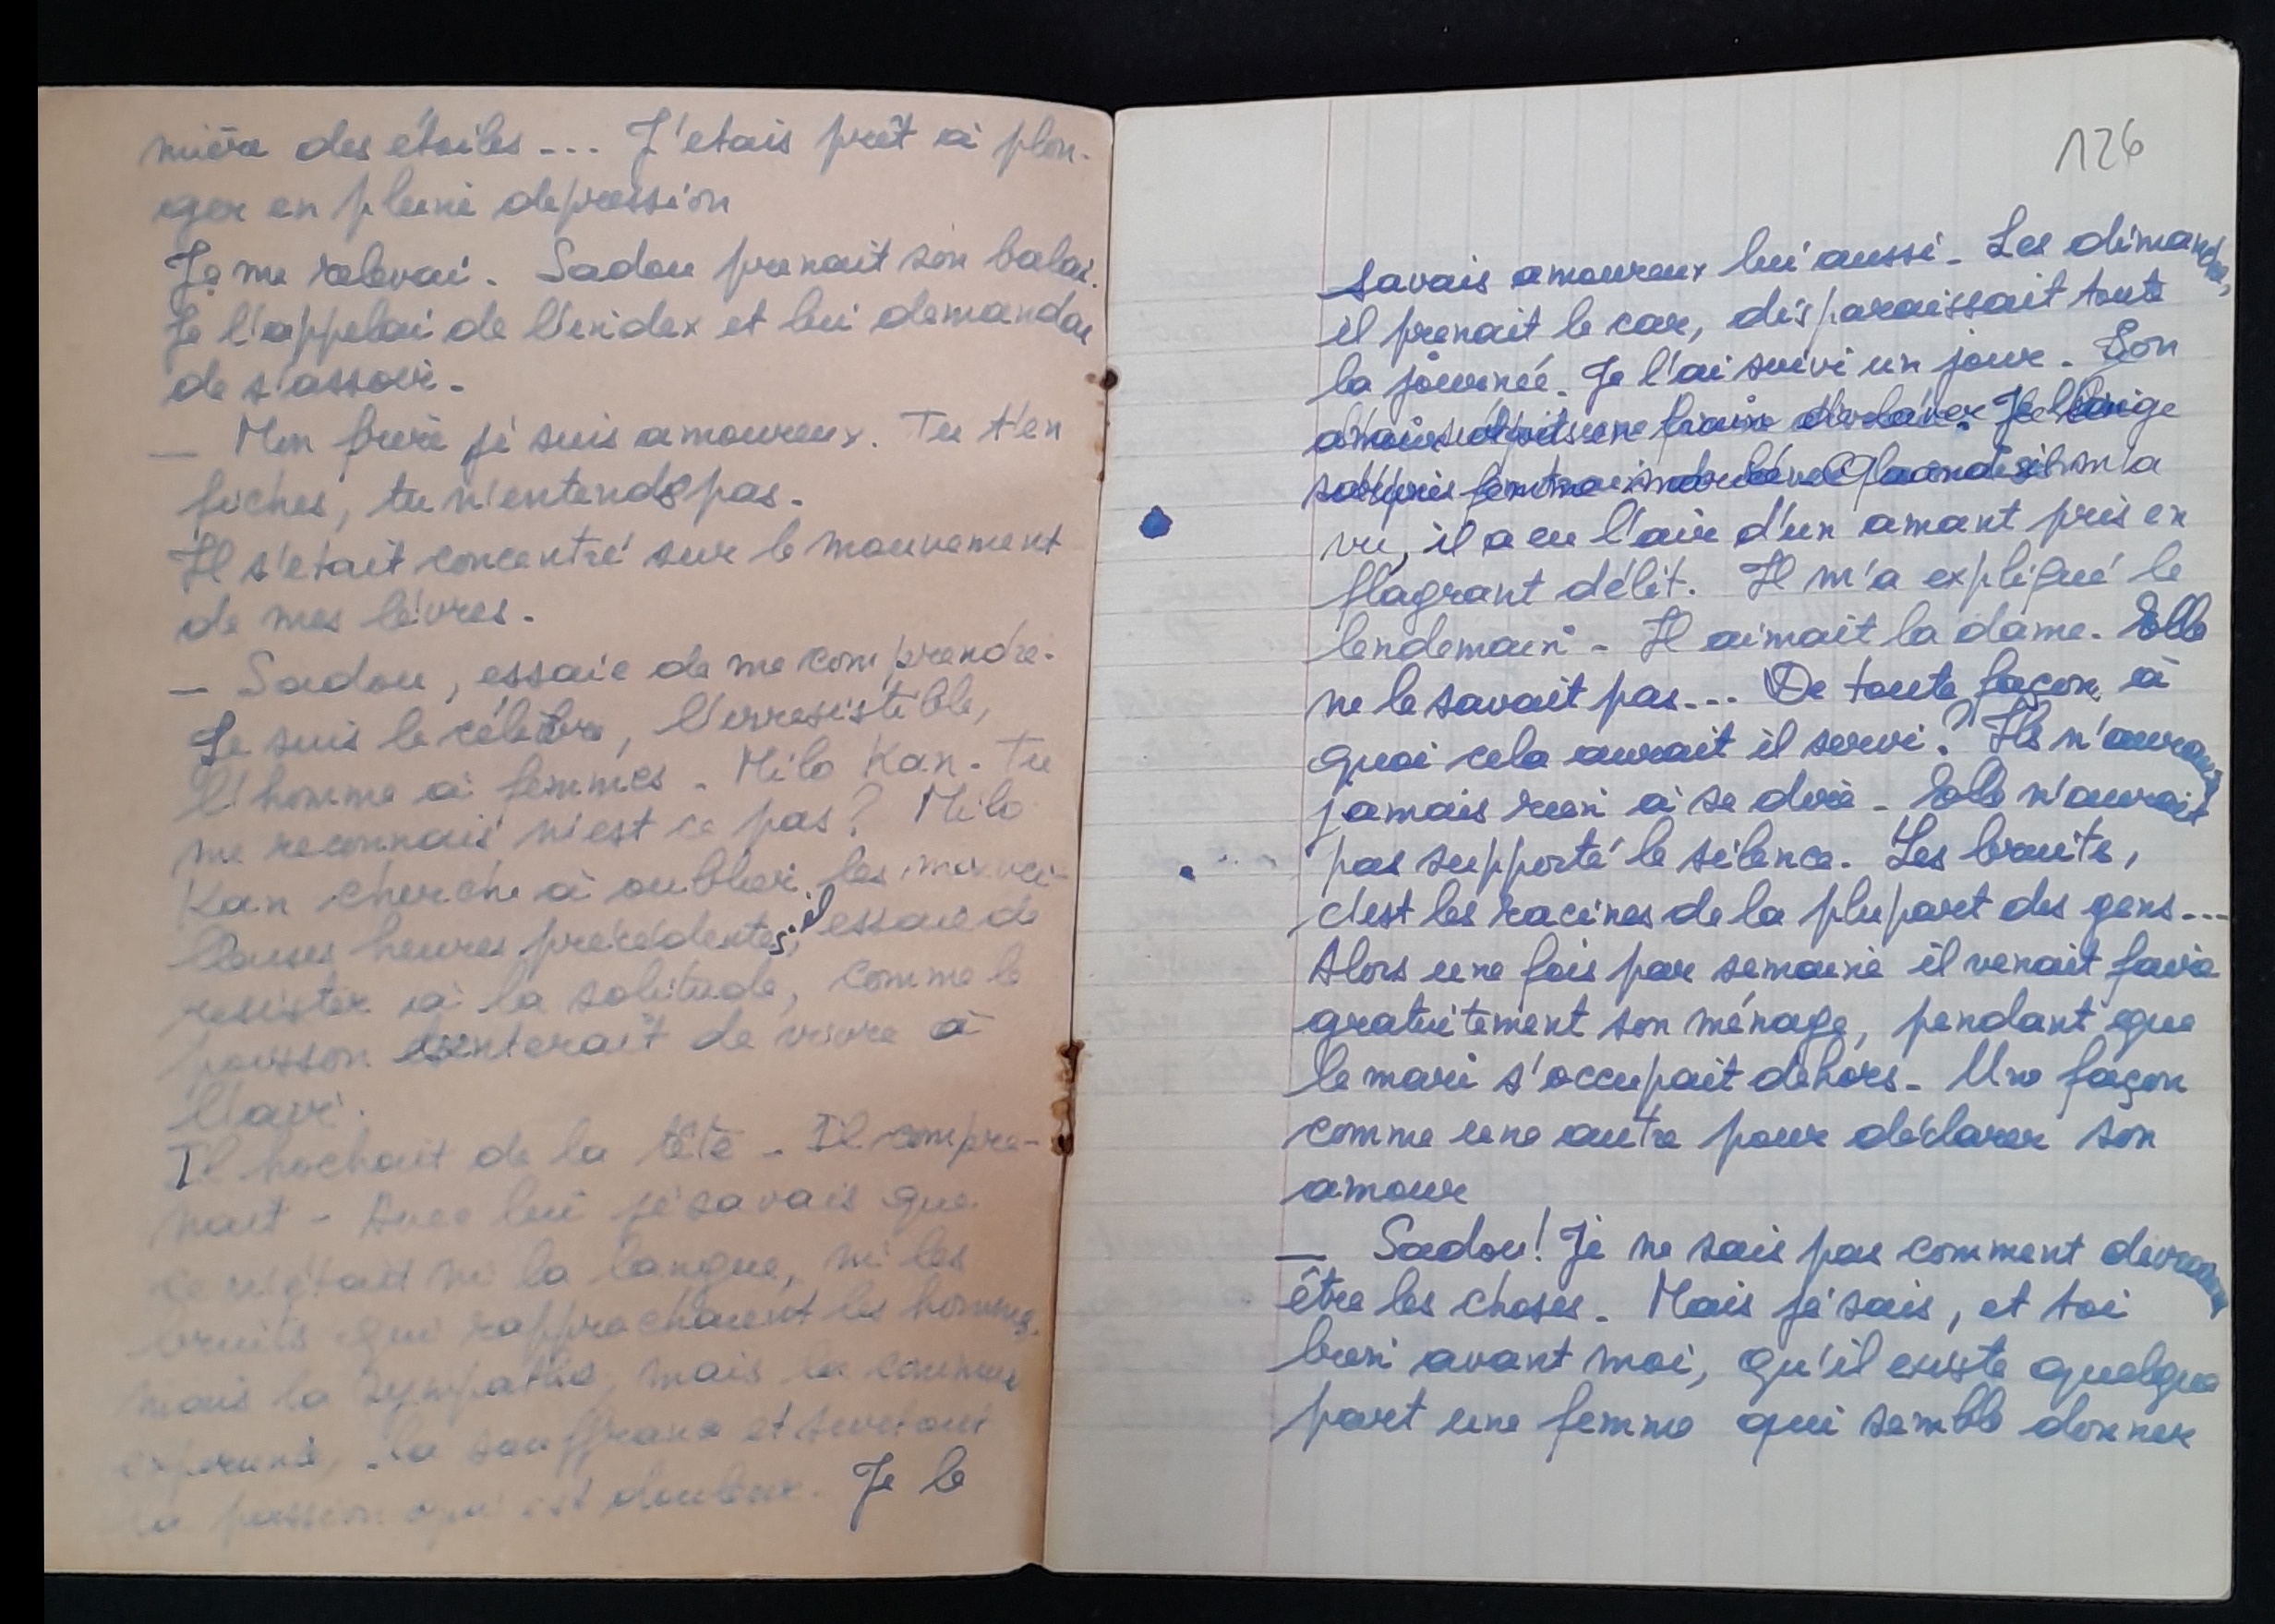 mière des étoiles --- J'etais prêt à plon-
ger en pleine depression
Je me relevai. Sadou prenait son balai.
Je l'appelai de l'index et lui demandai
de s'assoir.
— Mon frère je suis amoureux. Tu t'en
fiches, tu n'entends pas.
Il s'était concentré sur le mouvement
de mes lèvres.
— Sadou, essaie de me comprendre.
Je suis le célèbre, l'irresistible,
l'homme à femmes - Milo Kan. Tu
me reconnais n'est ce pas? Milo
Kan cherche à oublier les mervei-
lleuses heures précédentes, s'il essaie de
resister à la solitude, comme le
poisson tenterait de vivre à
l'air.
Il hochait de la tête - Il compre-
nait - Avec lui je savais que
ce n'était ni la langue, ni les
bruits qui rapprochaient les hommes,
mais la sympathie, mais la commune
la souffrance et surtout
la passion qui est douleur. Je le
126
savais amoureux lui aussi. Les dimanches,
il prenait le car, disparaissait toute
la journée. Je l'ai suivi un jour. Son
vu, il a eu l'air d'un amant pris en
flagrant délit. Il m'a expliqué le
lendemain - Il aimait la dame. Elle
ne le savait pas... De toute façon, à
quoi cela aurait il servi? Ils n'auraient
jamais rien à se dire - Elle n'aurait
pas supporté le silence. Les bruits,
c'est les racines de la plupart des gens...
Alors une fois par semaine il venait faire
gratuitement son ménage, pendant que
le mari s'occupait dehors - Une façon
comme une autre pour déclarer son
amour
— Sadou! Je ne sais pas comment devraient
être les choses. Mais je sais, et toi
bien avant moi, qu'il existe quelque
part une femme qui semble donner